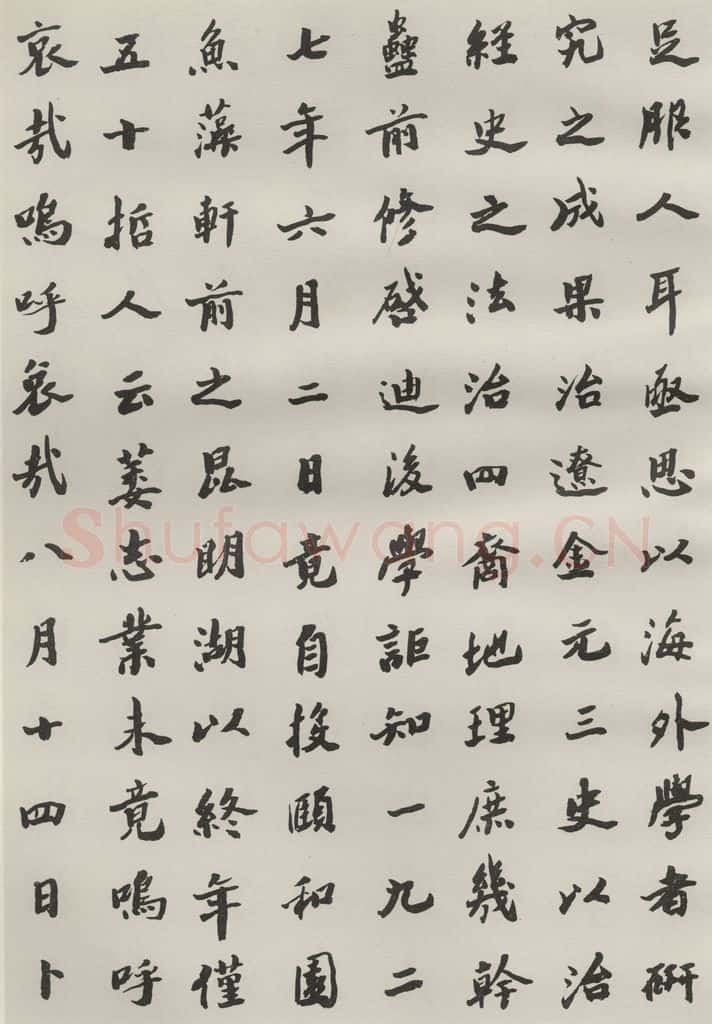 足服人耳亟思以海外學者研
究之成果治遼金元三史以治
經史之法治四裔地理庶幾幹
蠱前修啓迪後學詎知一九二
七年六月二日竟自投頤和園
魚藻軒前之昆明湖以終年僅
五十哲人云萎志業未竟嗚呼
哀哉嗚呼哀哉八月十四日卜
Shufawang.CN